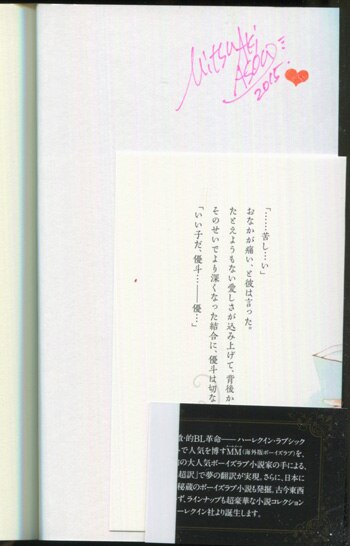 MitsuAki
ASOU
2015.
「……苦し…い」
おなかが痛い、と彼は言った。
たとえようもない愛しさが込み上げて、背後か
そのせいでより深くなった結合に、優斗は切な
「いい子だ、優斗……――優…」
的BL革命――ハーレクイン・ラブシック
で人気を博すMM(海外版ボーイズラブ)を、
の大人気ボーイズラブ小説家の手による、
超訳」で夢の翻訳が実現。さらに、日本に
秘蔵のボーイズラブ小説も発掘。古今東西
ず、ラインナップも超豪華な小説コレクション
ーレクイン社より誕生します。